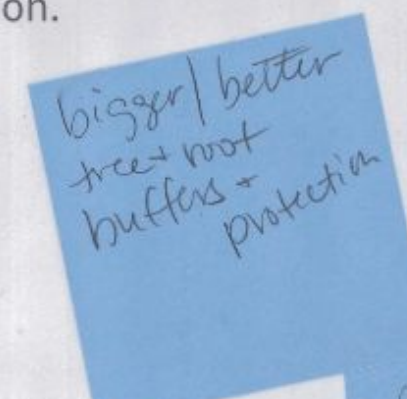 on.
bigger/better
tree + root
buffers +
protection